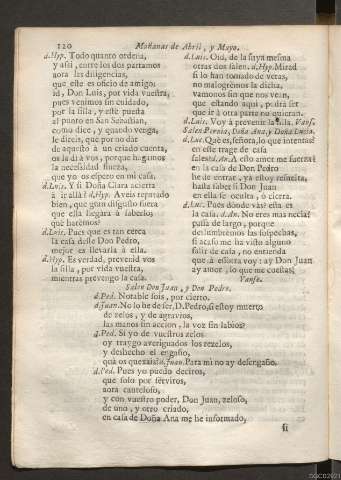 120
Mañanas de Abril, y Mayo.
d. Hyp. Todo quanto ordena,
y assi, entre los dos partamos
aora las diligencias,
que este es oficio de amigo:
id, Don Luis, por vida vuestra,
pues venimos sin cuidado,
por la silla, y esté puesta
al punto en San Sebastian,
como dice, y quando venga,
le direis, que por no dar
de aquesto à un criado cuenta,
os la dí à vos, porque hagamos
la necessidad fineza,
que yo os espero en mi casa.
d. Luis. Y si Doña Clara acierra
à ir allà? d. Hyp. Aveis reparado
bien, que gran disgusto fuera
que ella llegara à saberlo;
què harèmos?
d. Luis. Pues que es tan cerca
la casa deste Don Pedro,
mejor es llevarla à ella.
d. Hyp. Es verdad, prevenid vos
la silla, por vida vuestra,
mientras prevengo la casa.
d. Luis. Oid, de la saya mesma
otras dos salen. d. Hyp. Mirad
si lo han tomado de veras,
no malogrèmos la dicha,
vamonos sin que nos vean,
que estando aqui, podrà ser
que ir à otra parte no quieran.
d. Luis. Voy à prevenir la silla. Vans.
Salen Pernia, Doña Ana, y Doña Lucia.
d. Luc. Què es, señora, lo que intentas
en este trage de casa
sales? d. An. A esto amor me fuerza:
en la casa de Don Pedro
he de entrar, ya estoy resuelta,
hasta saber si Don Juan
en ella se oculta, ò cierra.
d. Luc. Pues dònde vàs? esta es
la casa. d. An. No eres mas necia?
passa de largo, porque
deslumbremos las sospechas,
si acaso me ha visto alguno
salir de casa, no entienda
que à essotra voy: ay Don Juan
ay amor, lo que me cuestas!
Vanse.
Salen Don Juan, y Don Pedro.
d. Ped. Notable sois, por cierto.
d. Juan. No lo he de ser, D. Pedro, si estoy muerto
de zelos, y de agravios,
las manos sin accion, la voz sin labios?
d. Ped. Si yo de vuestros zelos
oy traygo averiguados los rezelos,
y deshecho el engaño,
què os quexais? d. Juan. Para mi no ay desengaño.
d. Ped. Pues yo puedo deciros,
que solo por serviros,
aora cauteloso,
y con vuestro poder, Don Juan, zeloso,
de uno, y otro criado,
en casa de Doña Ana me he informado,
si